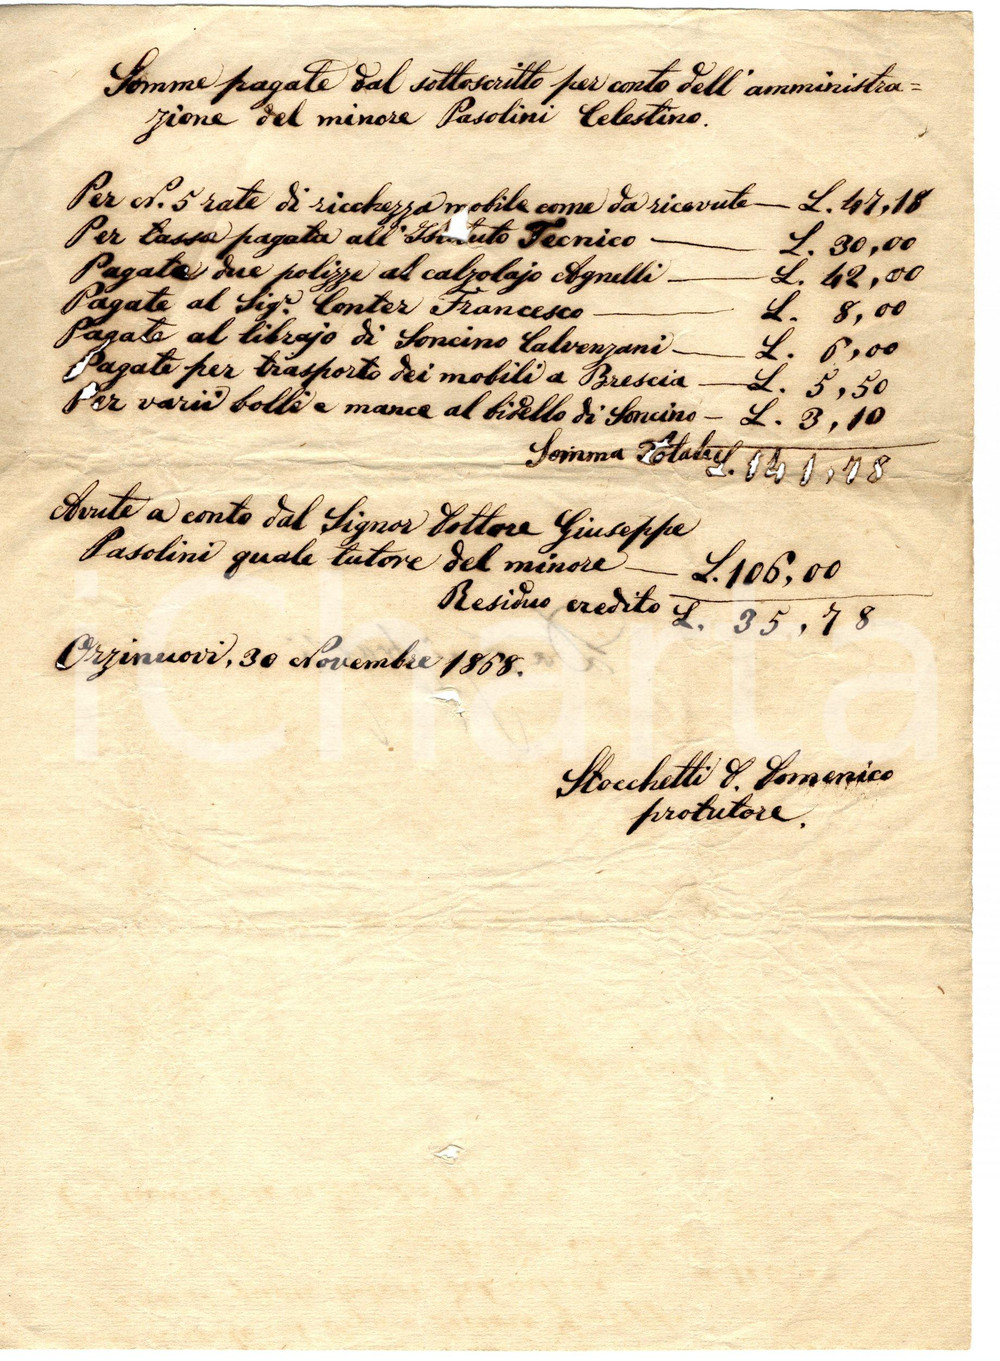 Somme pagate dal sottoscritto per conto dell'amministra=
zione del minore Pasolini Celestino.
Per N. 5 rate di ricchezza mobile come da ricevute — L. 47,18
Per tassa pagata all'Istituto Tecnico — L. 30,00
Pagate due polizze al calzolajo Agnelli — L. 42,00
Pagate al Sigr. Conter Francesco — L. 8,00
Pagate al librajo di Soncino Calvenzani — L. 6,00
Pagate per trasporto dei mobili a Brescia — L. 5,50
Per varii bolli e mance al bidello di Soncino — L. 3,10
Somma Totale L. 141,78
Avute a conto dal Signor Dottore Giuseppe
Pasolini quale tutore del minore — L. 106,00
Residuo credito L. 35,78
Orzinuovi, 30 Novembre 1868.
Stocchetti D. Domenico
protutore.